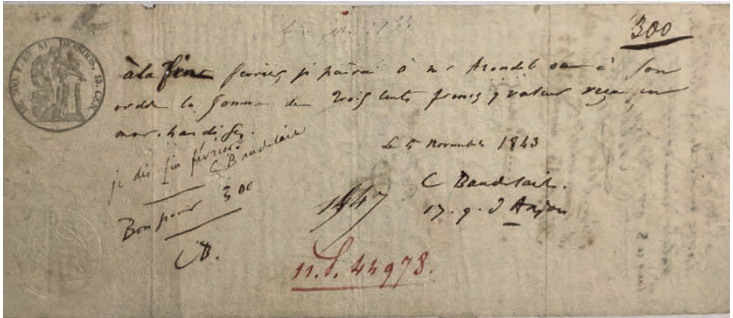 300
à la fin février je paierai à mr Arondel ou à son
ordre la somme de trois cents francs, valeur reçue en
marchandises.
Le 5 Novembre 1843
je dis fin février
C Baudelaire
C Baudelaire.
17. q. d'Anjou
Bon pour 300
CB.
1147
11. S. 44978.